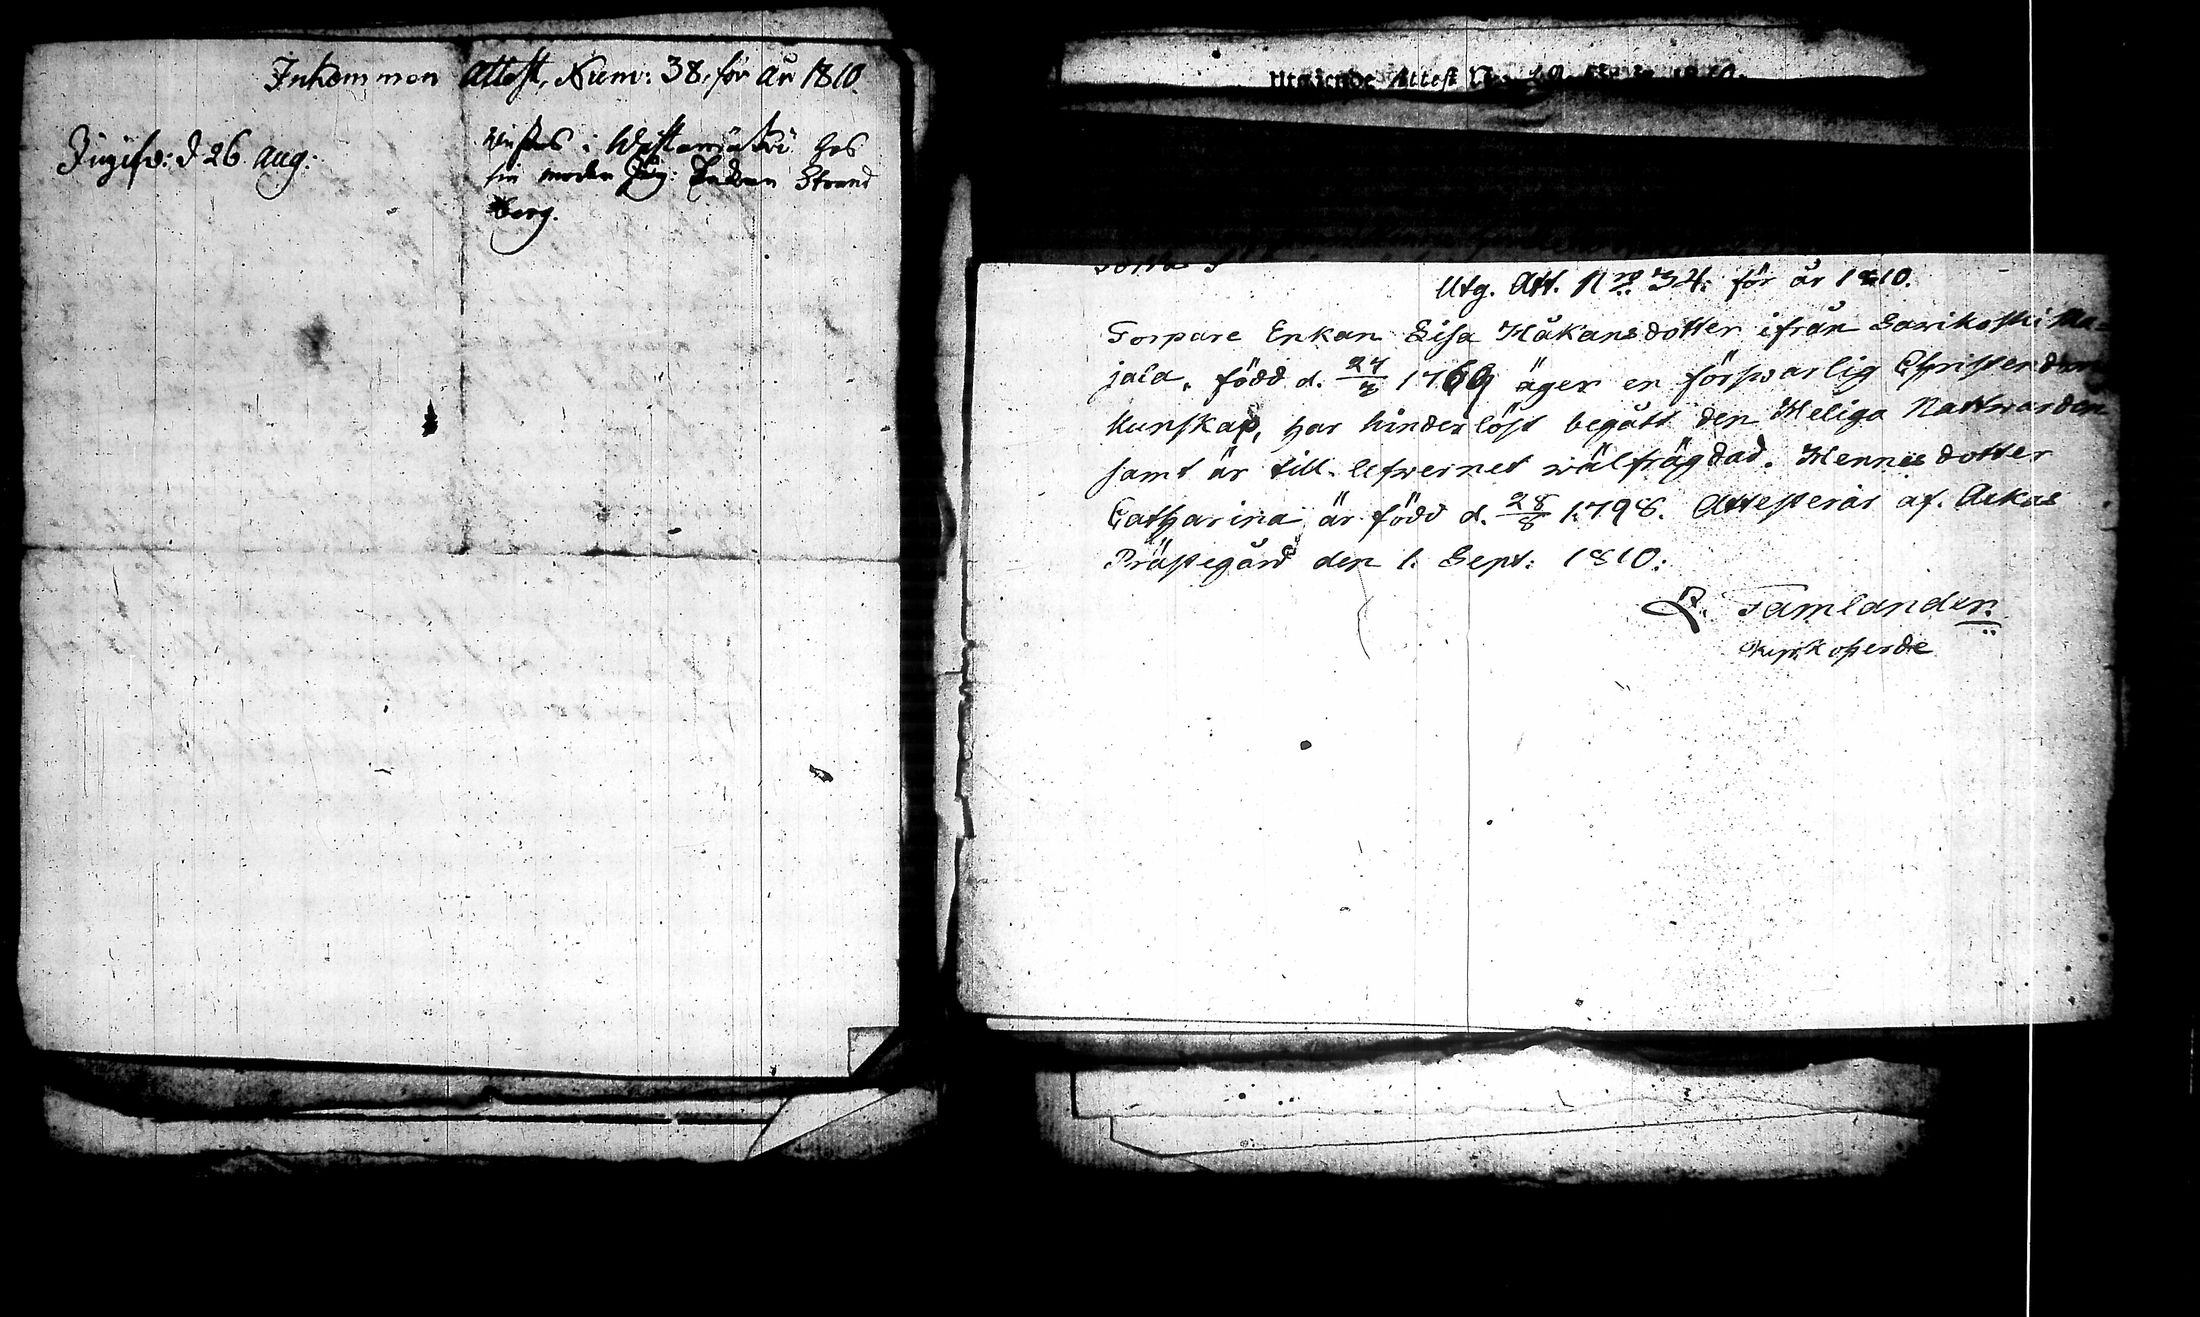 Inkommen Attest, Num: 38. för År 1810.
d 26 Aug:
hos
sin moder Enkan Strand
berg.
Utgående Attest
Utg. Att. N:ro 34. för år 1810.
Torpare Enkan Lisa Håkansdotter ifrån Sarikoski Ma=
jala, född d. 24/3 1769 äger en förswarlig Christendoms
kunskap, har hinderlöst begått den Heliga Nattwarden
samt är till lefwernet wälfrägdad. Hennes dotter
Catharina är född d. 28/8 1798. Attesterar af. Askas
Prästegård den 1. Sept: 1810:
Tamlander.
Kyrkoherde